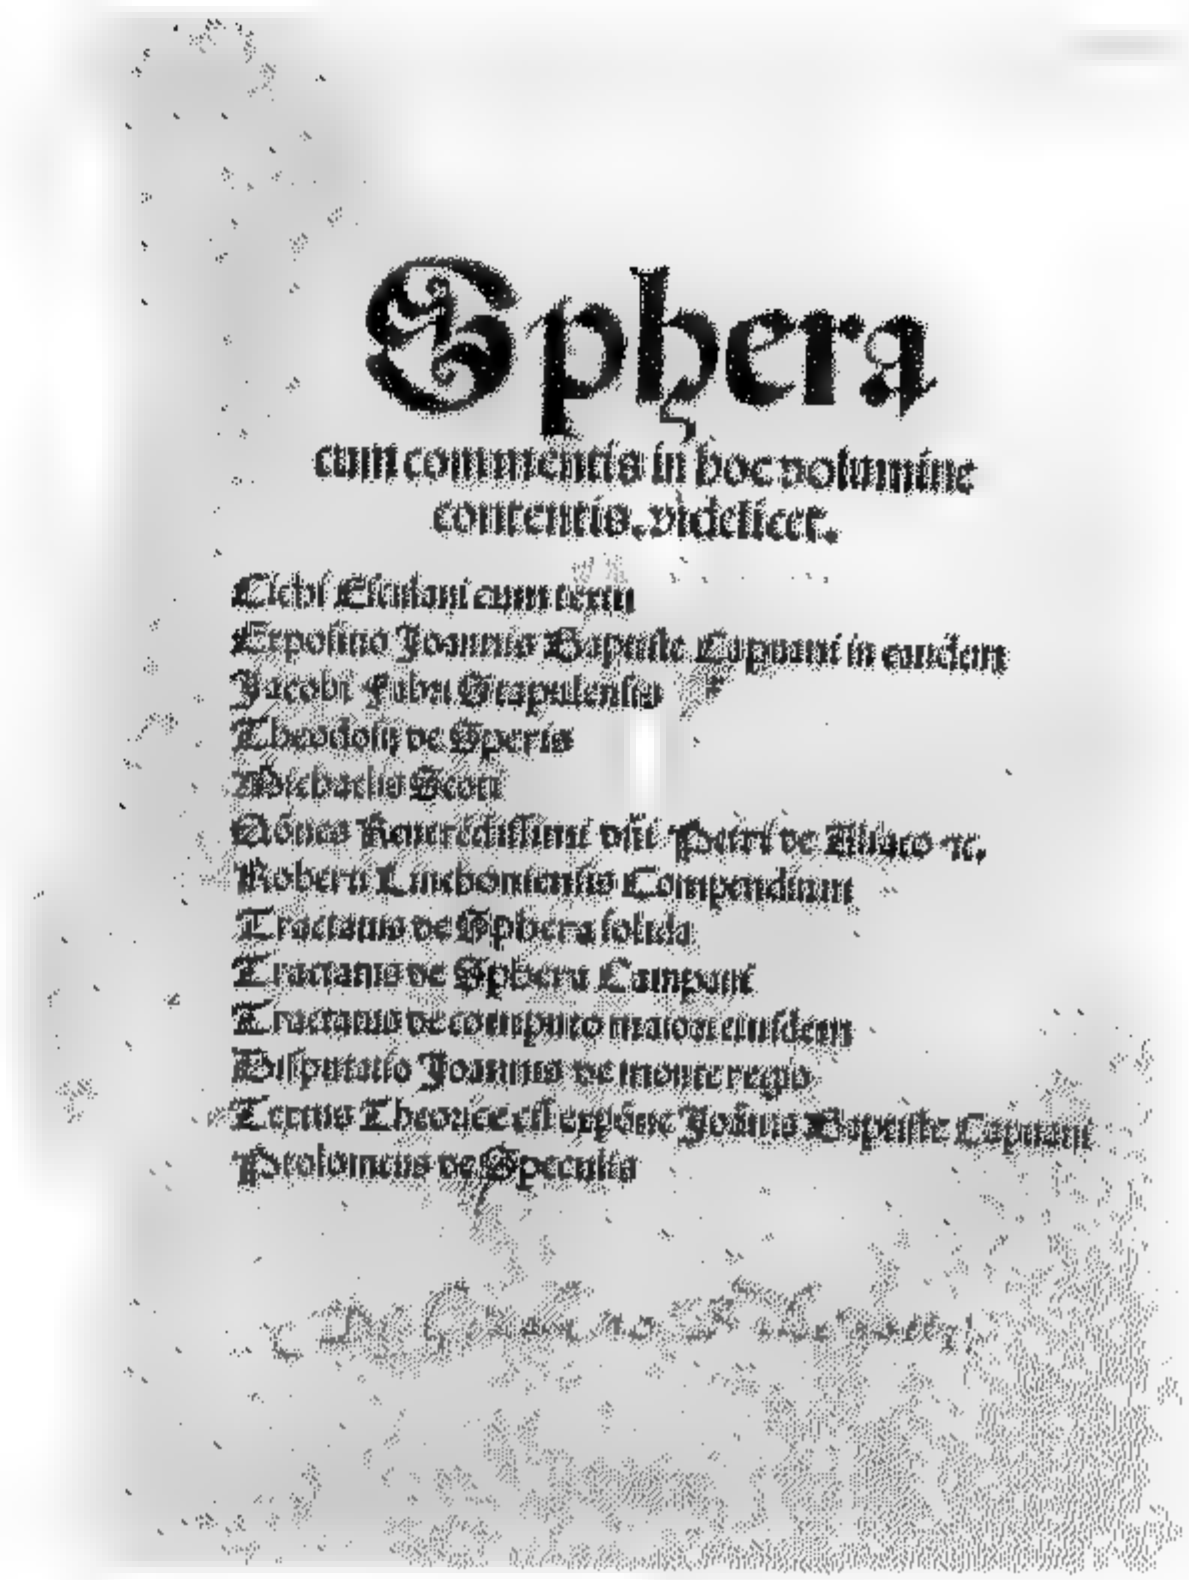 Sphera
cum commentis in hoc volumine
contentis. videlicet.
Cichi Esculani cum textu
Expositio Joannis Baptiste Capuani in eandem
Jacobi Fabri Stapulensis
Theodosij de Speris
Michaelis Scoti
Qõnes Reuerẽdissimi dñi Petri de Aliaco ⁊c.
Roberti Linchoniensis Compendium
Tractatus de Sphera solida
Tractatus de Sphera Campani
Tractatus de computo maiori eiusdem
Disputatio Joannis de monte regio
Textus Theorice cũ expõne Joãnis Baptiste Capuani
Ptolomeus de Speculis